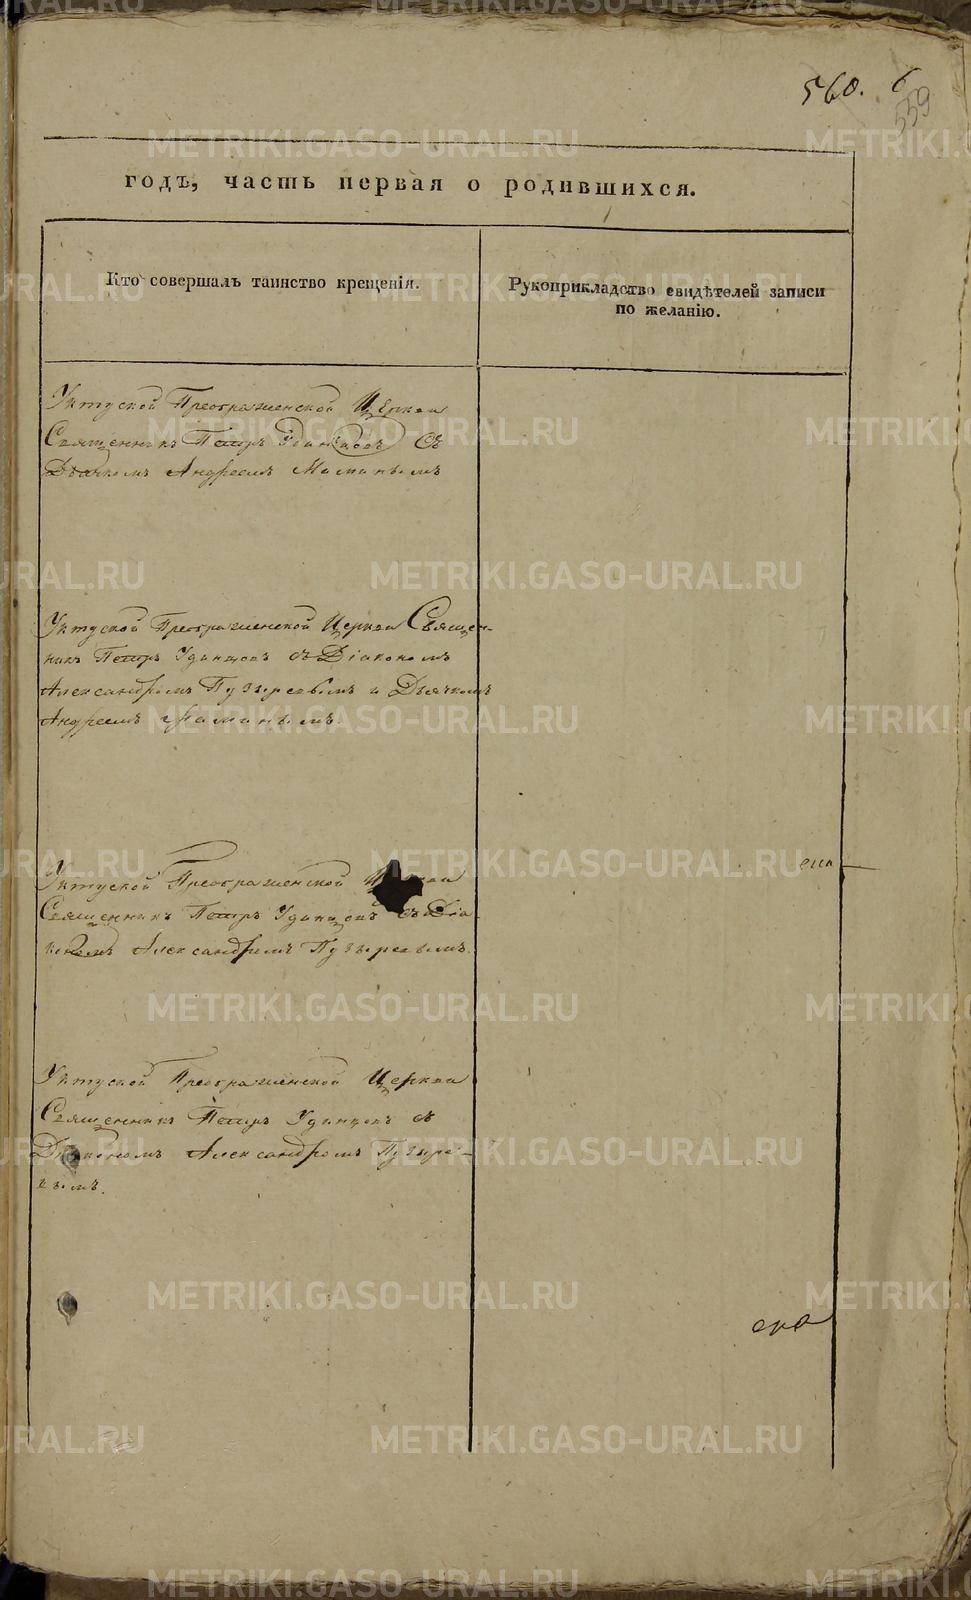 560. 6
559
годъ, часть первая о родившихся.
Кто совершалъ таинство крещенія.
Рукоприкладство свидѣтелей записи
по желанію.
Уктуской Преображенской Церкви
Священникъ Петръ Удинцовъ съ
Дьячкомъ Андреемъ Маминымъ
Уктуской Преображенской Церкви Священ-
никъ Петръ Удинцовъ съ Діакономъ
Александромъ Пузыревымъ и Дьячкомъ
Андреемъ Маминымъ.
Уктуской Преображенской
Священникъ Петръ Удинцовъ съ Діа-
кономъ Александромъ Пузыревымъ.
Уктуской Преображенской Церкви
Священникъ Петръ Удинцовъ съ
Діакономъ Александромъ Пузыре-
вымъ.
METRIKI.GASO-URAL.RU